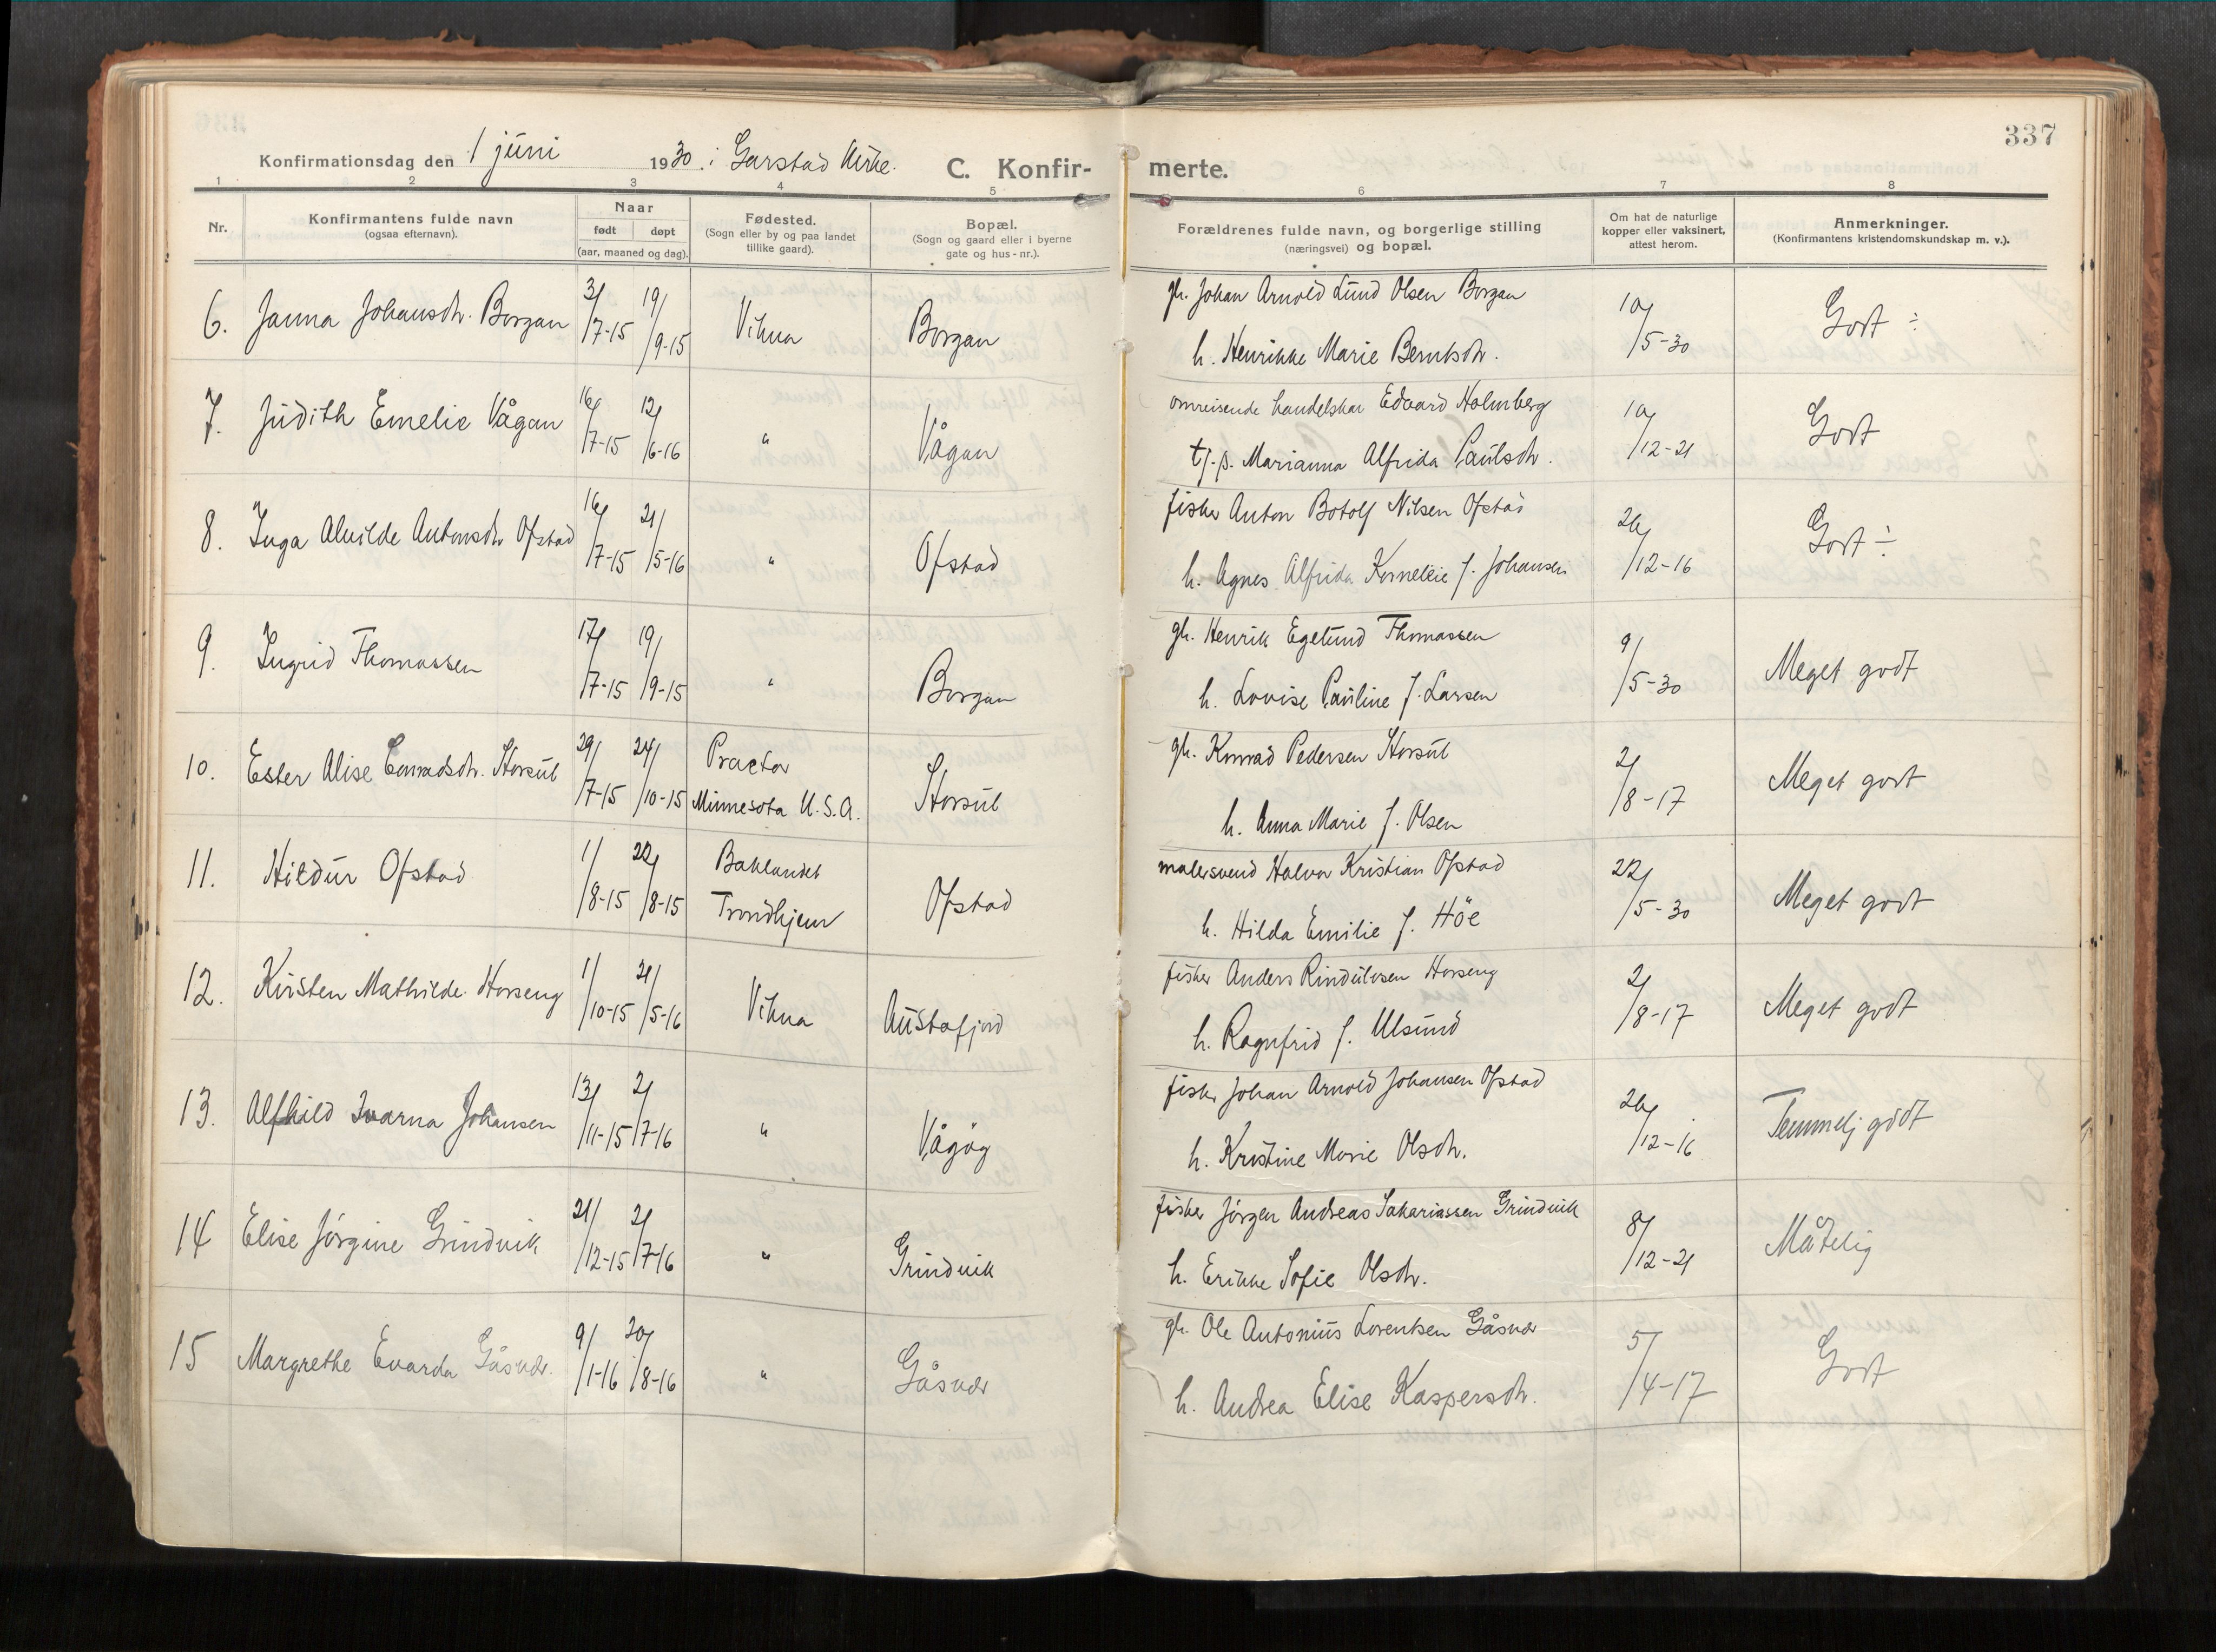 337
Konfirmationsdag den 1 juni 1930. i Garstad kirke.
C. Konfir- merte.
1 2 3 4 5 6 7 8
Nr.
Konfirmantens fulde navn
(ogsaa efternavn).
Naar
født døpt
(aar, maaned og dag).
Fødested.
(Sogn eller by og paa landet
tillike gaard).
Bopæl.
(Sogn og gaard eller i byerne
gate og hus-nr.).
Forældrenes fulde navn, og borgerlige stilling
(næringsvei) og bopæl.
Om hat de naturlige
kopper eller vaksinert,
attest herom.
Anmerkninger.
(Konfirmantens kristendomskundskap m. v.).
6. Janna Johansdtr. Borgan 3/7-15 19/9-15 Vikna Borgan
gb. Johan Arnold Lund Olsen Borgan
h. Henrikke Marie Berntsdtr. 10/5-30 Godt ÷
7. Judith Emelie Vågan 16/7-15 12/6-16 " Vågan
omreisende handelskar Edvard Holmberg
tj.p. Marianna Alfrida Paulsdtr. 10/12-21 Godt
8. Inga Alvilde Antonsdtr. Ofstad 16/7-15 21/5-16 " Ofstad
fisker Anton Botolf Nilsen Ofstad
h. Agnes Alfrida Kornelie f. Johansen 26/12-16 Godt ÷
9. Ingrid Thomassen 17/7-15 19/9-15 " Borgan
gb. Henrik Egelund Thomassen
h. Lovise Pauline f. Larsen 9/5-30 Meget godt
10. Ester Alise Conradsdtr. Storsul 29/7-15 24/10-15 Practor
Minnesota U.S.A. Storsul
gb. Konrad Pedersen Storsul
h. Anna Marie f. Olsen 2/8-17 Meget godt
11. Hildur Ofstad 1/8-15 22/8-15 Baklandet
Trondhjem Ofstad
malersvend Halvor Kristian Ofstad
h. Hilda Emilie f. Höe 22/5-30 Meget godt
12. Kristen Mathilde Horseng 1/10-15 21/5-16 Vikna Austafjord
fisker Anders Rindulvsen Horseng
h. Ragnfrid f. Ulsund 2/8-17 Meget godt
13. Alfhild Ivarna Johansen 13/11-15 2/7-16 " Vågög
fisker Johan Arnold Johansen Ofstad
h. Kristine Marie Olsdtr. 26/12-16 Temmelj godt
14 Elise Jörgine Grindvik 21/12-15 2/7-16 " Grindvik
fisker Jörgen Andreas Sakariassen Grindvik
h. Erikke Sofie Olsdtr. 8/12-21 Måtelig
15 Margrethe Evarda Gåsvær. 9/1-16 20/8-16 " Gåsvær
gb. Ole Antonius Lorentsen Gåsvær
h. Andrea Elise Kaspersdtr. 5/4-17 Godt